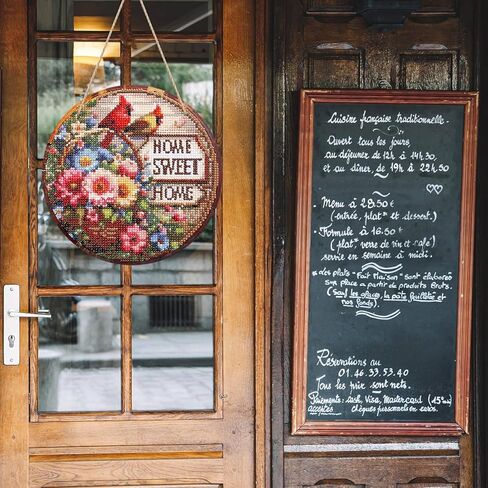 HOME
SWEET
HOME
Cuisine française traditionnelle.
Ouvert tous les jours,
au déjeuner de 12h à 14h30,
et au dîner, de 19h à 22h50
- Menu à 28.50€
(entrée, plat et dessert.)
- Formule à 16.50
(plat verre de vin et café)
servie en semaine à midi.
* des plats "Fait Maison" sont élaborés
sur place a partir de produits Bruts.
(Sauf les glaces, la pâte feuilletée et
nos fonds).
Réservations au
01.46.33.53.40
Tous les prix sont nets.
Paiements: cash, Visa, Mastercard (15€ mini)
acceptés chèques personnels en euros.